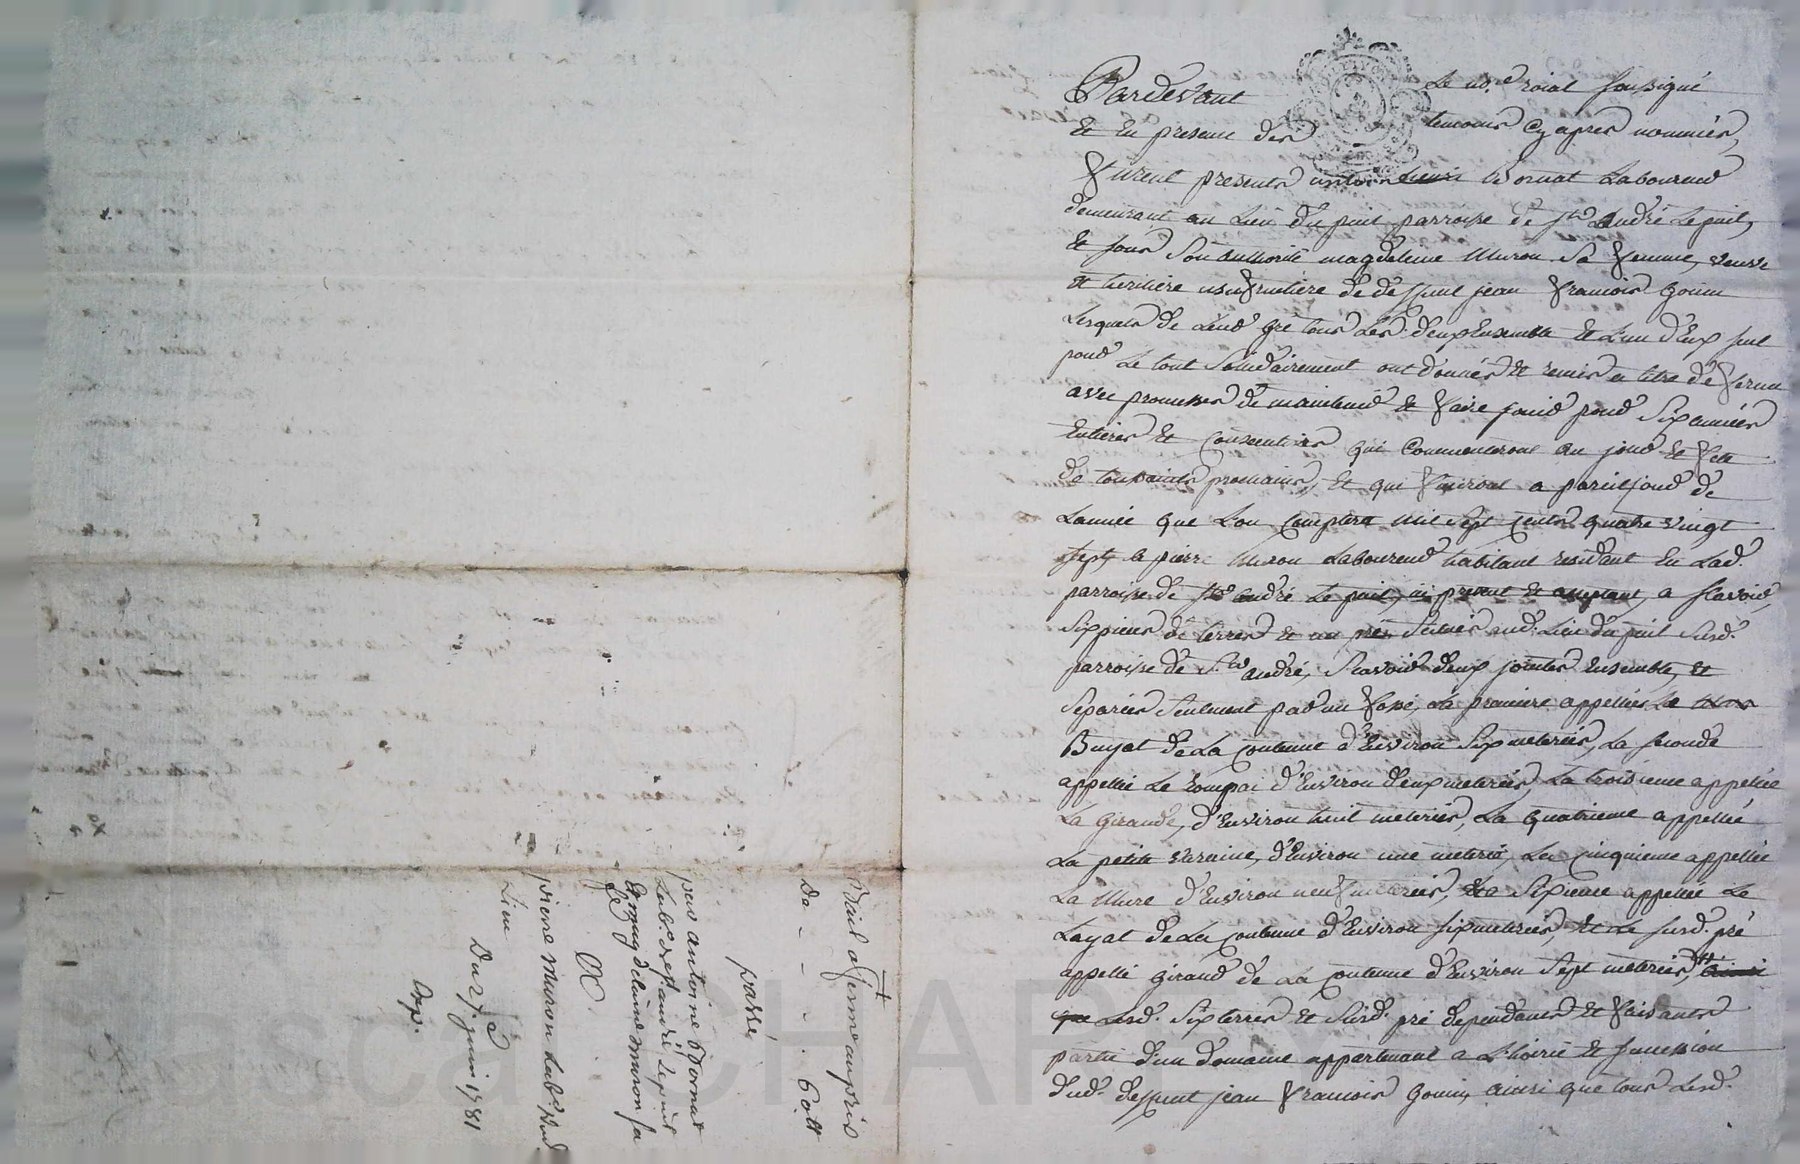 Bail a ferme au pris
De - - - . 60 ₶
passé
par antoine Bornat
Lab.r de st andré Le puit
Et magdelaine muron sa
fe
A
pierre muron Lab.r dud.
Lieu
Du 27.e juin 1781
Exp.
Pardevant Le no.re roial soussigné
Et En presence des temoins Cy apres nommés,
Furent presents antoine Bornat Laboureur
demeurant au Lieu du puit parroisse de st andré Le puit,
Et sous Son authorité magdeleine Muron Sa femme, veuve
Et heritiere usufruitiere de deffunt jean francois gouin
Lesquels de Leur gré tous Les deux Ensemble Et L'un d'Eux seul
pour Le tout Solidairement ont donnés Et remis a titre de ferme
avec promesses de maintenir Et faire jouir pour Six années
Entieres Et Consecutives qui Commenceront au jour Et fete
de toussaints prochains, Et que finiront a pareil jour de
Lannée que Lon Comptera Mil Sept Cents quatre vingt
Sept a pierre Muron Laboureur habitant residant En Lad.
parroisse de st andré Le puit, ici present Et acceptant, a scavoir,
Six pieces de terres Et un pré Situés aud. Lieu du puit Susd.
parroisse de St andré, Scavoir deux jointes Ensemble, Et
Separées Seulement par un fossé, La premiere appellée Le
Buyat de La Contenue d'Environ Six meterées, La seconde
appellée Le d'Environ deux meterées, La troisieme appellée
La Giraude, d'Environ huit meterées, La quatrieme appellée
La petite Varenne, d'Environ une meterée, La Cinquieme appellée
La Mure d'Environ neuf meterées, Et La Sixieme appellée Le
Layat de La Contenue d'Environ six meterées, Et Le susd. pré
appellé Giraud de La Contenue d'Environ Sept meterées,
Lesd. Six terres Et Susd. pré dependants Et faisants
partie d'un domaine appartenant a L'hoirie Et succession
dud. deffunt jean francois gouin, ainsi que tous Lesd.